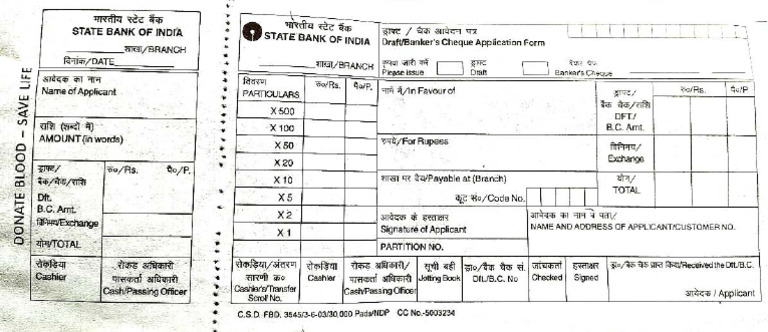 DONATE BLOOD – SAVE LIFE
भारतीय स्टेट बैंक
STATE BANK OF INDIA
शाखा/BRANCH
दिनांक/DATE
आवेदक का नाम
Name of Applicant
राशि (शब्दों में)
AMOUNT (in words)
ड्राफ्ट/ रु०/Rs. पै०/P.
बैंक/चेक/राशि
Dft.
B.C. Amt.
विनिमय/Exchange
योग/TOTAL
रोकड़िया रोकड़ अधिकारी
Cashier पासकर्ता अधिकारी
Cash/Passing Officer
भारतीय स्टेट बैंक
STATE BANK OF INDIA
शाखा/BRANCH
ड्राफ्ट / चैक आवेदन पत्र
Draft/Banker's Cheque Application Form
कृपया जारी करें ड्राफ्ट बैंकर चैक
Please issue Draft Banker's Cheque
विवरण रु०/Rs. पै०/P.
PARTICULARS
X 500
X 100
X 50
X 20
X 10
X 5
X 2
X 1
नाम में/In Favour of
रुपये/For Rupees
शाखा पर देय/Payable at (Branch)
कूट सं०/Code No.
ड्राफ्ट/ रु०/Rs. पै०/P
बैंक चैक/राशि
DFT/
B.C. Amt.
विनिमय/
Exchange
योग/
TOTAL
आवेदक के हस्ताक्षर
Signature of Applicant
PARTITION NO.
आवेदक का नाम व पता/
NAME AND ADDRESS OF APPLICANT/CUSTOMER NO.
रोकड़िया/अंतरण रोकड़िया रोकड़ अधिकारी/ सूची बही ड्रा०/बैंक चैक सं. जांचकर्ता हस्ताक्षर ड्रा०/बैंक चैक प्राप्त किया/Received the Dft./B.C.
सारणी क्र० Cashier पासकर्ता अधिकारी Jotting Book Dft./B.C. No Checked Signed
Cashier's/Transfer Cash/Passing Officer
Scroll No.
आवेदक / Applicant
C.S.D. FBD. 3545/3-6-03/30,000 Pads/NDP CC No.-5003234